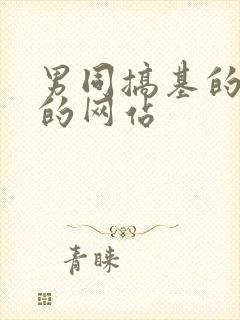 男同搞基的
的网站
青睐